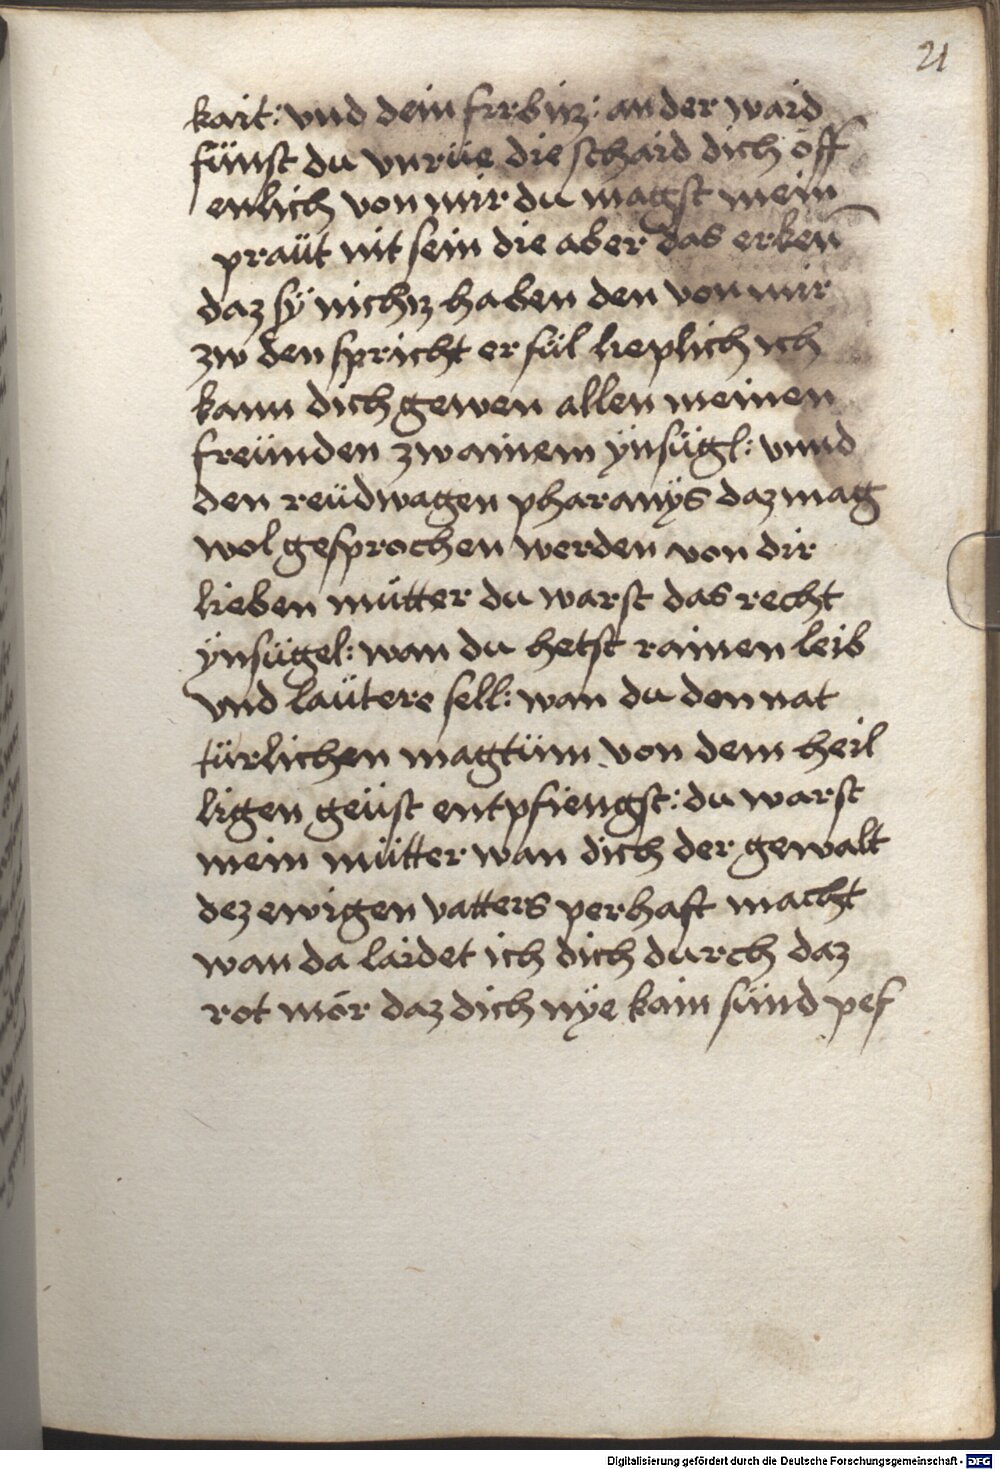 21
kait: vnd dein frrbiz: an der waid
fünst du vnrüe die schaid dich öff
enlich von mir du magst mein
praüt nit sein die aber das erken̄
daz sÿ nichtz haben den von mir
zw den spricht er fül lieplich ich
kann dich gewen allen meinen
freünden zw ainem ÿnsügl: vnnd
den reüdwagen pharanÿs daz mag
wol gesprochen werden von dir
lieben mütter du warst das recht
ÿnsügel: wan du hetst rainen leib
vnd laütere sell: wan du den nat
türlichen magtüm von dem heil
ligen geüst entpfiengst: du warst
mein mütter wan dich der gewalt
dez ewigen vatters perhaft macht
wan da laidet ich dich durch daz
rot mör daz dich nÿe kain sünd pef
Digitalisierung gefördert durch die Deutsche Forschungsgemeinschaft - DFG